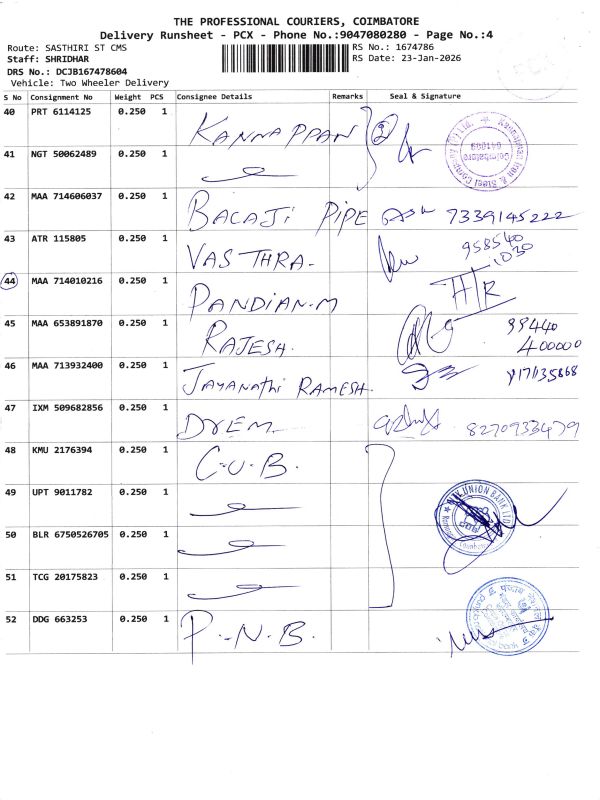 THE PROFESSIONAL COURIERS, COIMBATORE
Delivery Runsheet - PCX - Phone No.:9047080280 - Page No.:4
Route: SASTHIRI ST CMS
RS No.: 1674786
Staff: SHRIDHAR
RS Date: 23-Jan-2026
DRS No.: DCJB167478604
Vehicle: Two Wheeler Delivery
S No Consignment No Weight PCS Consignee Details Remarks Seal & Signature
40 PRT 6114125 0.250 1 KANNAPPAN
41 NGT 50062489 0.250 1
42 MAA 714606037 0.250 1 BALAJI PIPE 7339145222
43 ATR 115805 0.250 1 VASTHRA. 958540
1030
44 MAA 714010216 0.250 1 PANDIAN.M H/R
45 MAA 653891870 0.250 1 RAJESH. 99440
400000
46 MAA 713932400 0.250 1 JAYANATHI RAMESH.
47 IXM 509682856 0.250 1
48 KMU 2176394 0.250 1 C.U.B.
49 UPT 9011782 0.250 1
50 BLR 6750526705 0.250 1
51 TCG 20175823 0.250 1
52 DDG 663253 0.250 1 P.N.B.